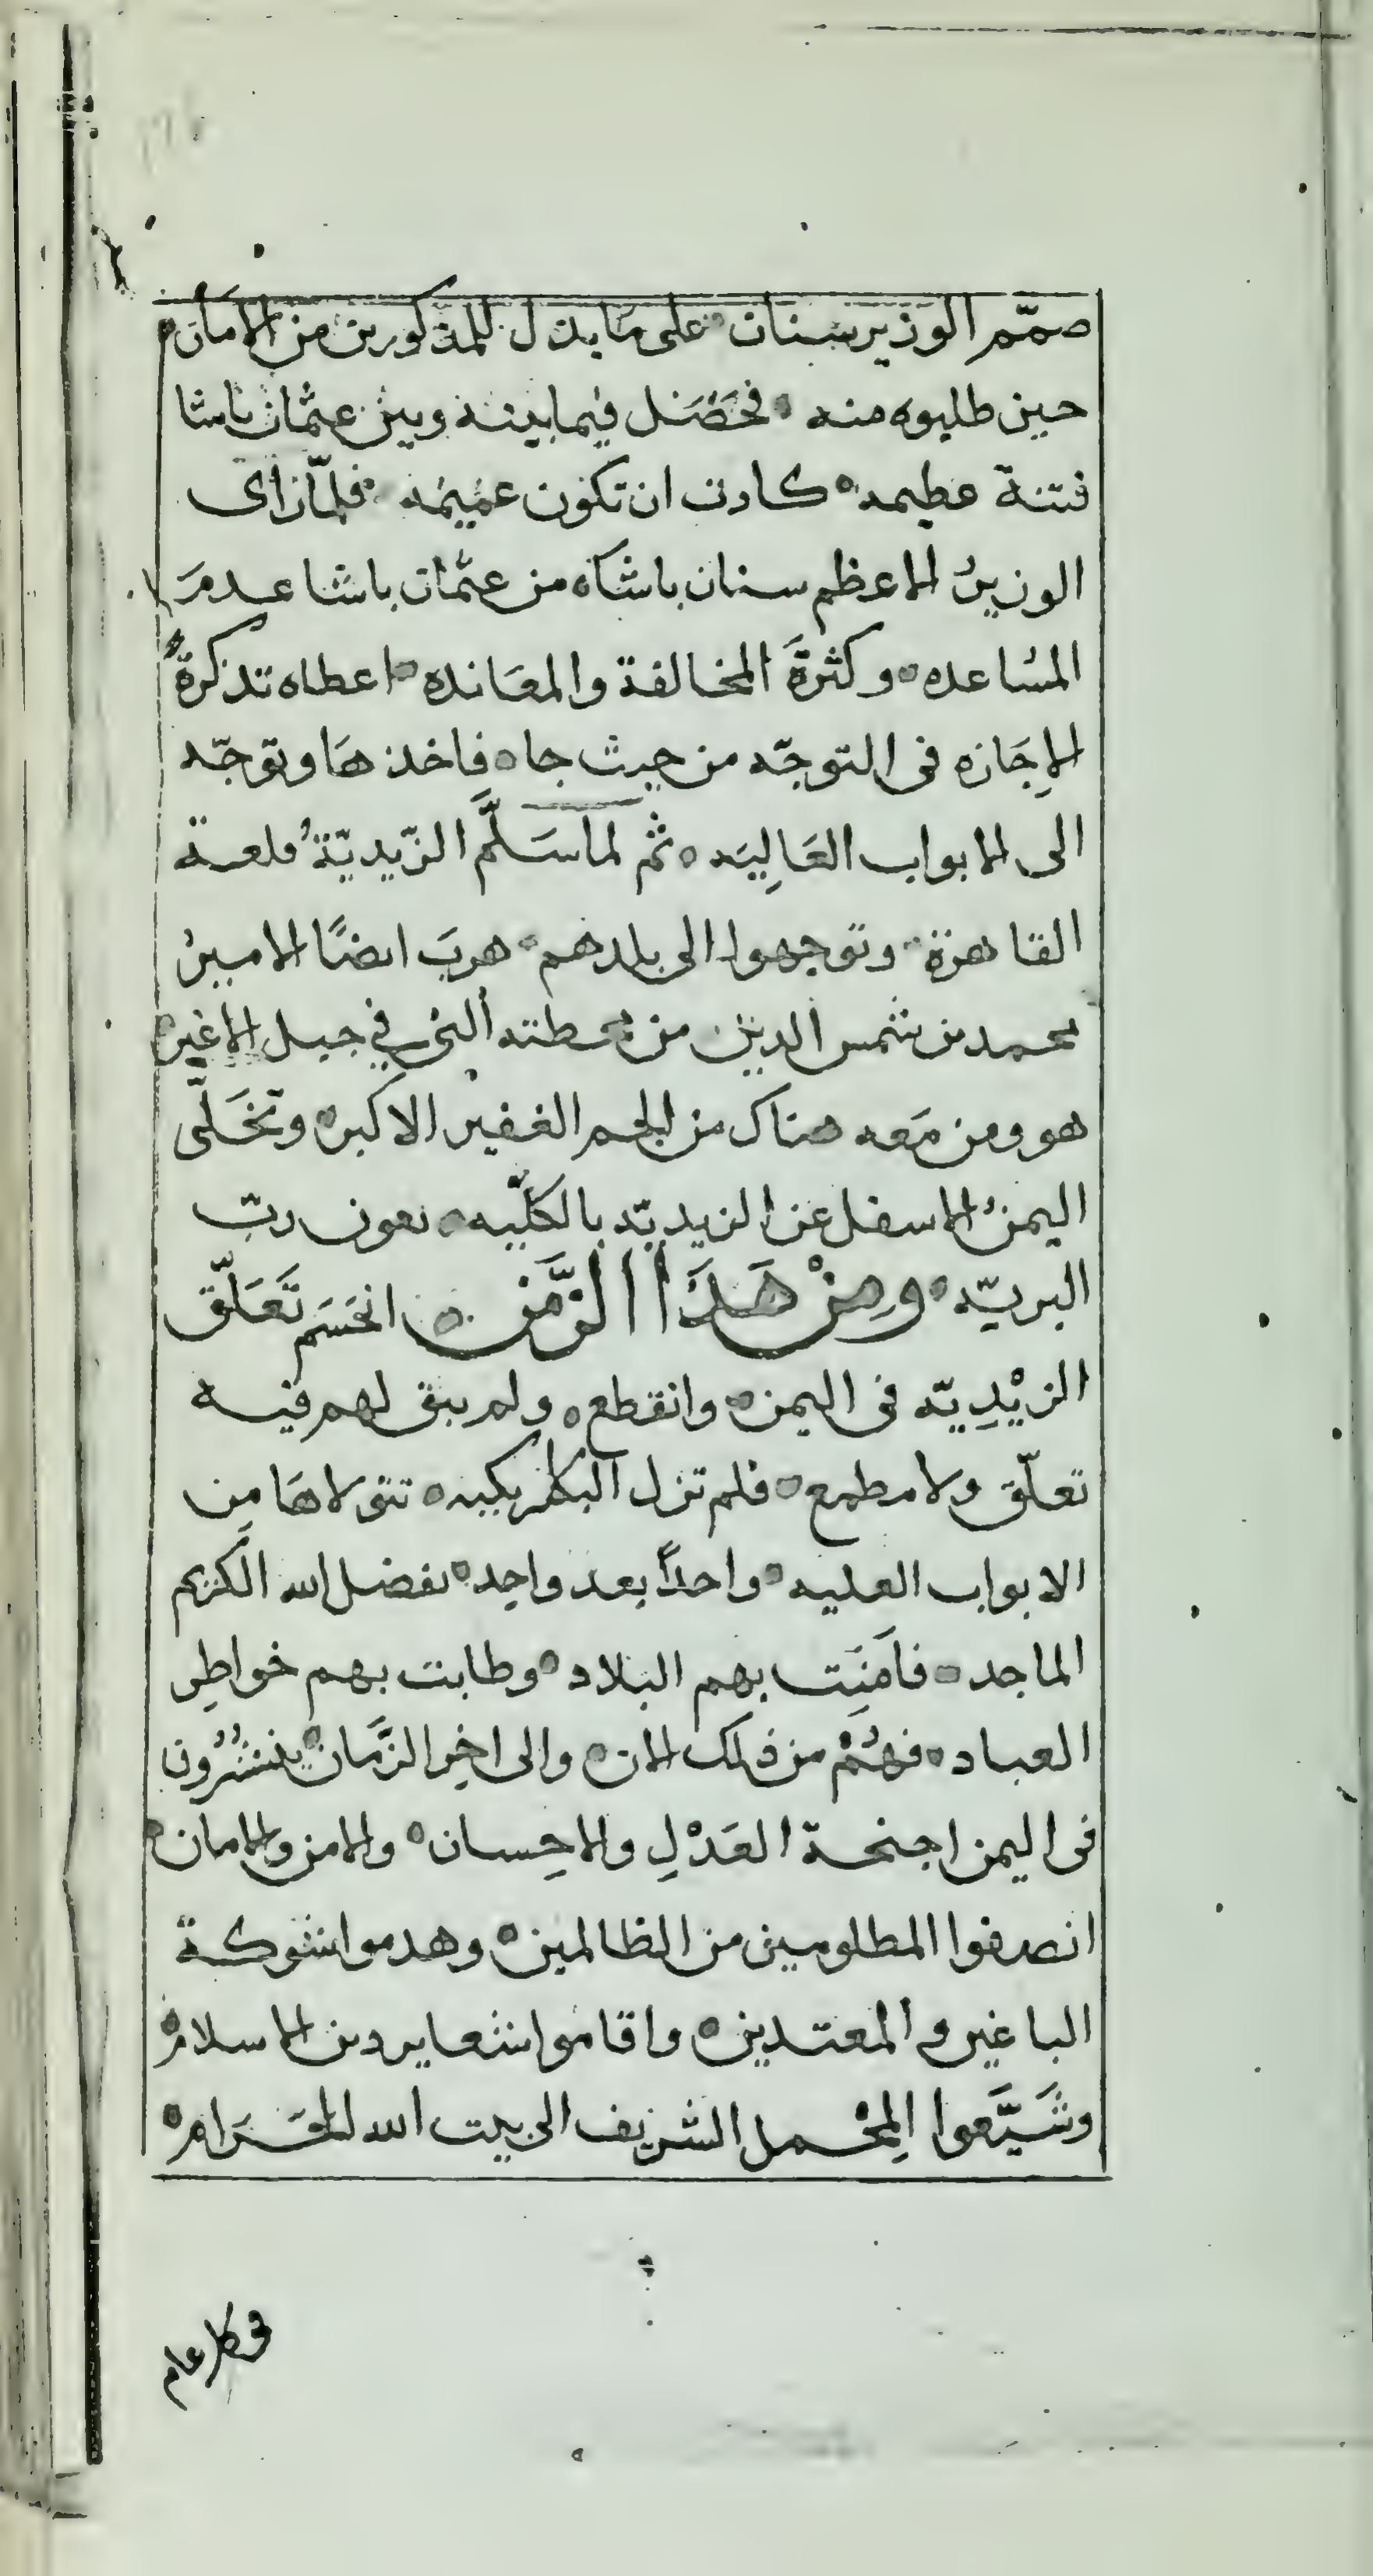 صمّم الوزير سنان على ما بذل للمذكورين من الامان
حين طلبوه منه فحَصَل فيما بينه وبين عثمان باشا
فتنة عظيمه كادت ان تكون عميمَه فلمّا رَاى
الوزيرُ الاعظم سنان باشاه من عثمان باشا عدمَ
المسَاعده وكثرةَ المخالفة والمعَانده اعطاه تذكرةً
الاِجَازه فى التوجّه من حيث جاه فاخذهَا وتوجّه
الى الابواب العَالِيَه ثم لما سَلَّم الزّيديّةُ قلعة
القاهرة وتوجهوا الى بلدهم هربَ ايضًا الاميرُ
محمد بن شمس الدين من محطته التي في جبل الاغبر
هو ومن مَعه هناك من الجم الغفير الاكبر وتخَلّى
اليمنُ الاسفل عن الزيديّه بالكلّيه بعون ربّ
البريّه ومِنْ هَذَا الزَّمَن انحَسَم تَعَلّق
الزيْدِيّه فى اليمن وانقطع ولم يبق لهم فيه
تعلّق ولا مطمع فلم تزل البكلربكيه تتولاهَا مِن
الابواب العليه واحدًا بعد واحِد بفضل الله الكريم
الماجد فاَمِنَت بهم البلاد وطابت بهم خواطِر
العباد فهُمْ من ذلك الان والى اخِر الزَّمان ينشُرُون
فى اليمن اجنحة العَدْلِ والاحِسان والامن والامان
انصفوا المظلومين من الظالمين وهدموا شوكة
الباغين والمعتدين واقاموا شعاير دين الاسلام
وشَيَّعوا المِحْمل الشريف الى بيت الله الحَرَام
فى كل عام